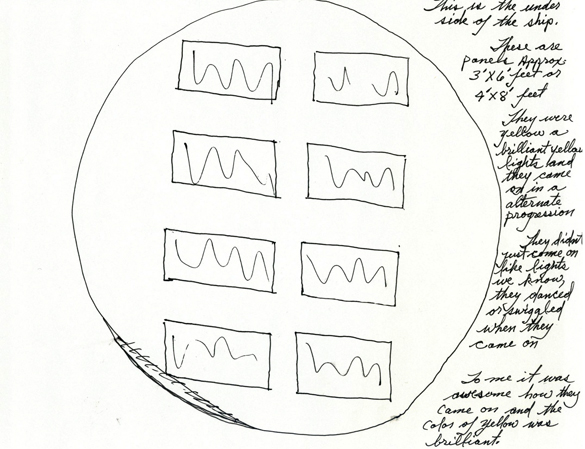 This is the under
side of the ship.
These are
panels Approx.
3'X6' feet or
4'X8' feet
They were
yellow a
brilliant yellow
lights and
they came
on in a
alternate
progression
They didn't
just come on
like lights
we know,
they danced
or swiggled
when they
came on
To me it was
awesome how they
came on and the
color of yellow was
brilliant.